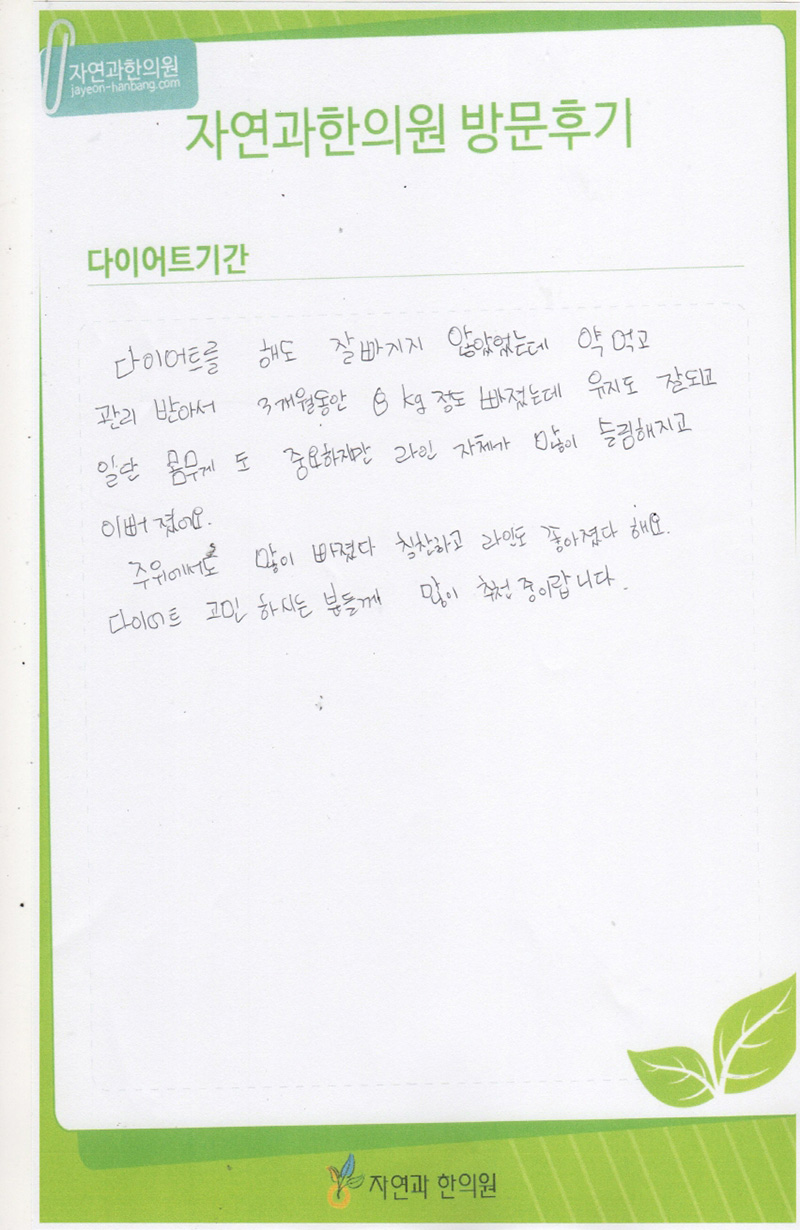 자연과한의원
jayeon-hanbang.com
자연과한의원 방문후기
다이어트기간
다이어트를 해도 잘 빠지지 않았었는데 약 먹고
관리 받아서 3개월동안 8 kg 정도 빠졌는데 유지도 잘되고
일단 몸무게 도 중요하지만 라인 자체가 많이 슬림해지고
이뻐 졌어요.
주위에서도 많이 빠졌다 칭찬하고 라인도 좋아졌다 해요.
다이어트 고민 하시는 분들께 많이 추천 중이랍니다.
자연과 한의원